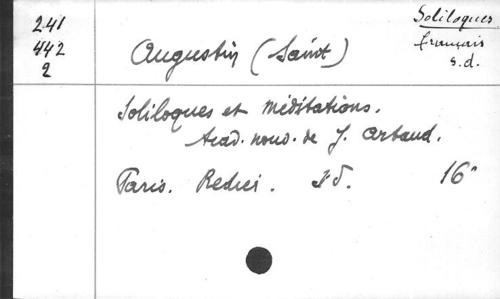 241
442
2
Augustin (Saint)
Soliloques
français
s.d.
Soliloques et Méditations.
Trad. nouv. de J. Artaud.
Paris. Redier. s d. 16°